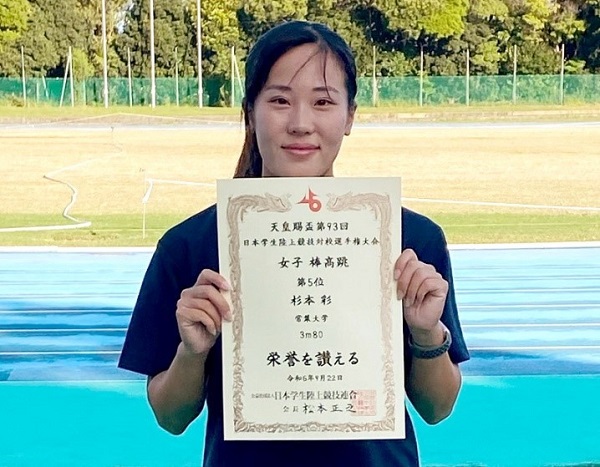 天皇賜盃第93回
日本学生陸上競技対校選手権大会
女子 棒高跳
第5位
杉本 彩
常葉大学
3m80
栄誉を讃える
令和6年9月22日
公益社団法人日本学生陸上競技連合
会長 松本正之